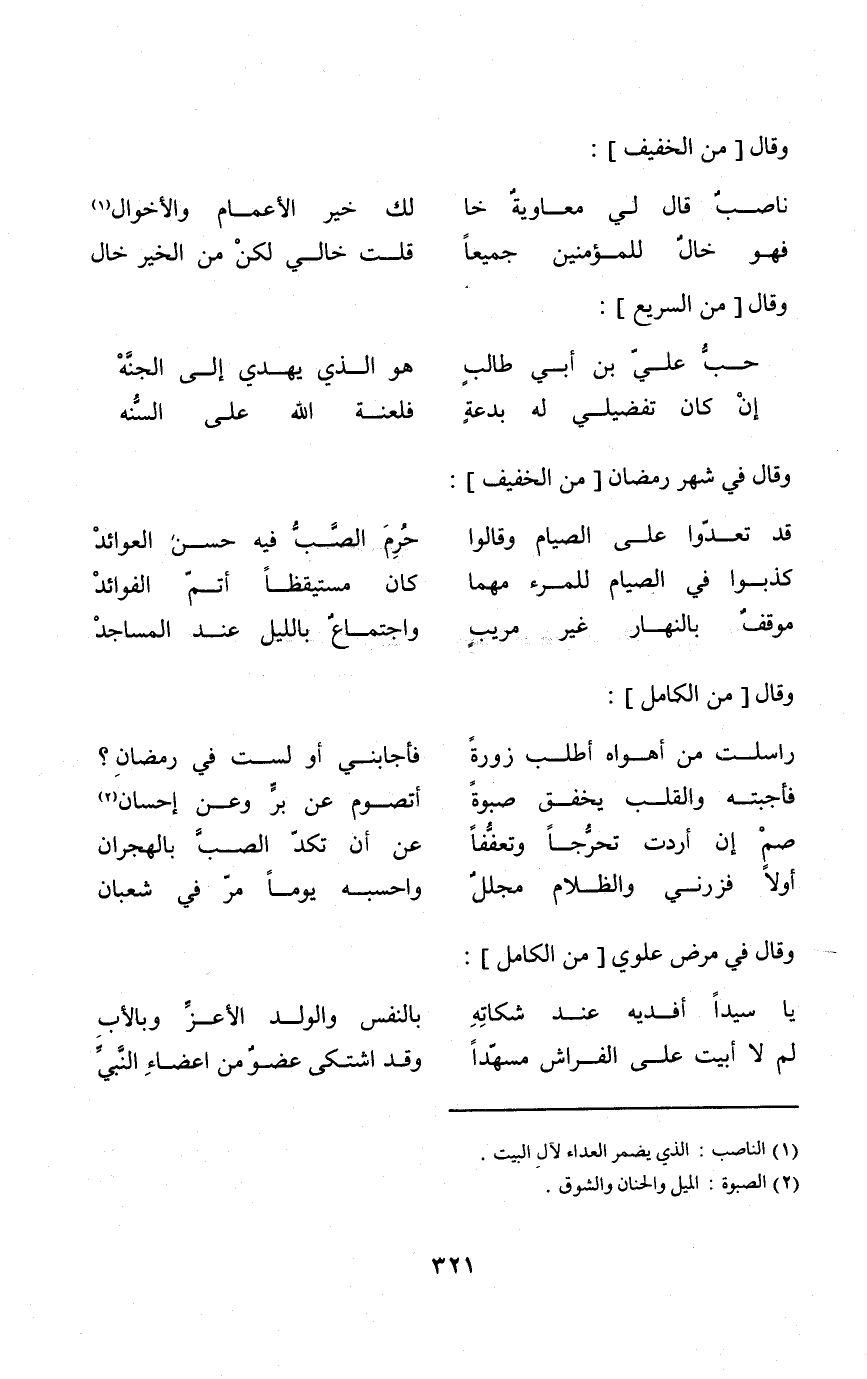 وقال [ من الخفيف ] :
ناصبٌ قال لي معاويةٌ خا لك خير الأعمام والأخوال(١)
فهو خالٌ للمؤمنين جميعاً قلت خالي لكنْ من الخير خال
وقال [ من السريع ] :
حبُّ عليّ بن أبي طالبٍ هو الذي يهدي إلى الجنَّهْ
إنْ كان تفضيلي له بدعةٍ فلعنة الله على السنُّه
وقال في شهر رمضان [ من الخفيف ] :
قد تعدّوا على الصيام وقالوا حُرِمَ الصَّبُّ فيه حسنُ العوائدْ
كذبوا في الصيام للمرء مهما كان مستيقظاً أتمّ الفوائدْ
موقفٌ بالنهار غير مريبٍ واجتماعٌ بالليل عند المساجدْ
وقال [ من الكامل ] :
راسلت من أهواه أطلب زورةً فأجابني أو لست في رمضانِ ؟
فأجبته والقلب يخفق صبوةً أتصوم عن برٍّ وعن إحسان(٢)
صمْ إن أردت تحرُّجاً وتعفُّفاً عن أن تكدّ الصبَّ بالهجران
أولاً فزرني والظلام مجللٌ واحسبه يوماً مرّ في شعبان
وقال في مرض علوي [ من الكامل ] :
يا سيداً أفديه عند شكاتِهِ بالنفس والولد الأعزِّ وبالأبِ
لم لا أبيت على الفراش مسهّداً وقد اشتكى عضوٌ من اعضاءِ النَّبيِّ
(١) الناصب : الذي يضمر العداء لآلِ البيت .
(٢) الصبوة : الميل والحنان والشوق .
٣٢١